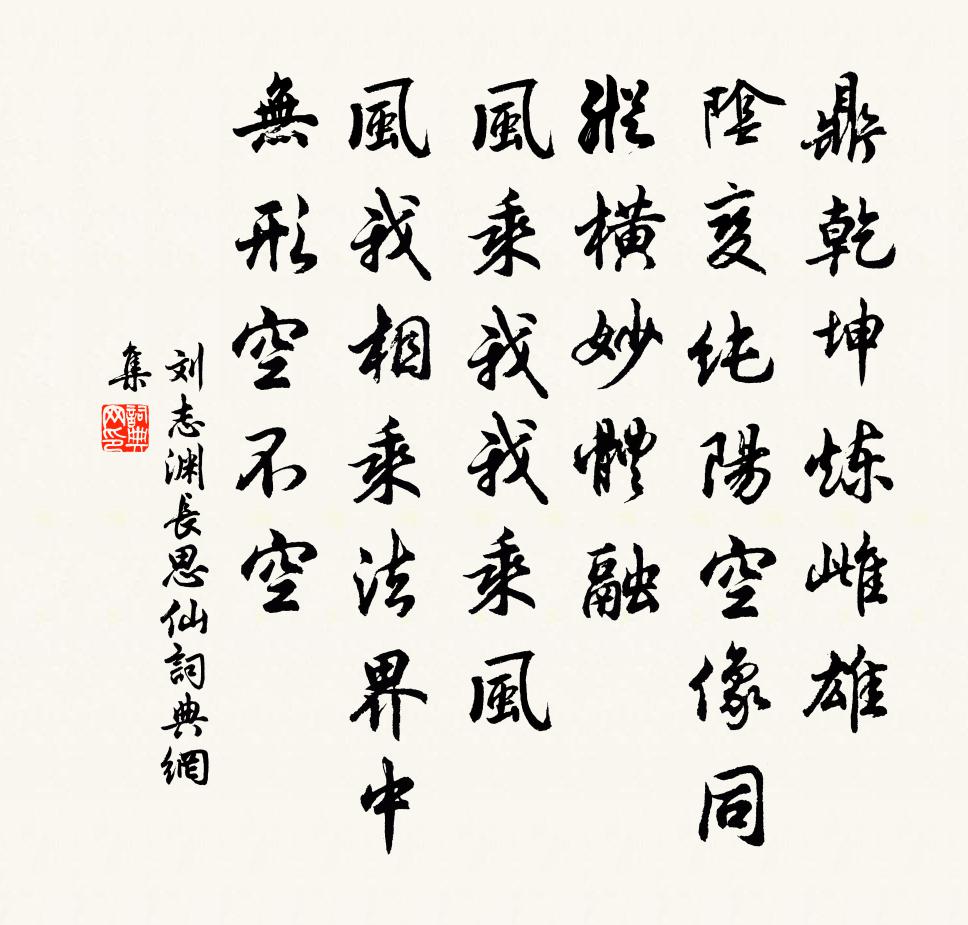 鼎乾坤炼雌雄
陰变纯陽空像同
縱橫妙體融
風乘我我乘風
風我相乘法界中
無形空不空
刘志渊長思仙詞典網
集
詞典网印